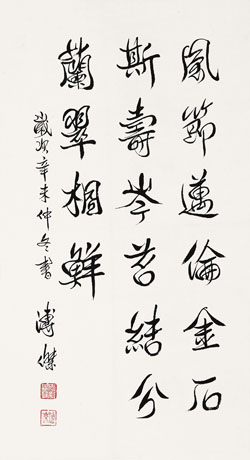 風節邁倫金石
斯壽岑苔結分
蘭翠鮮
歲次辛未仲冬書
溥傑